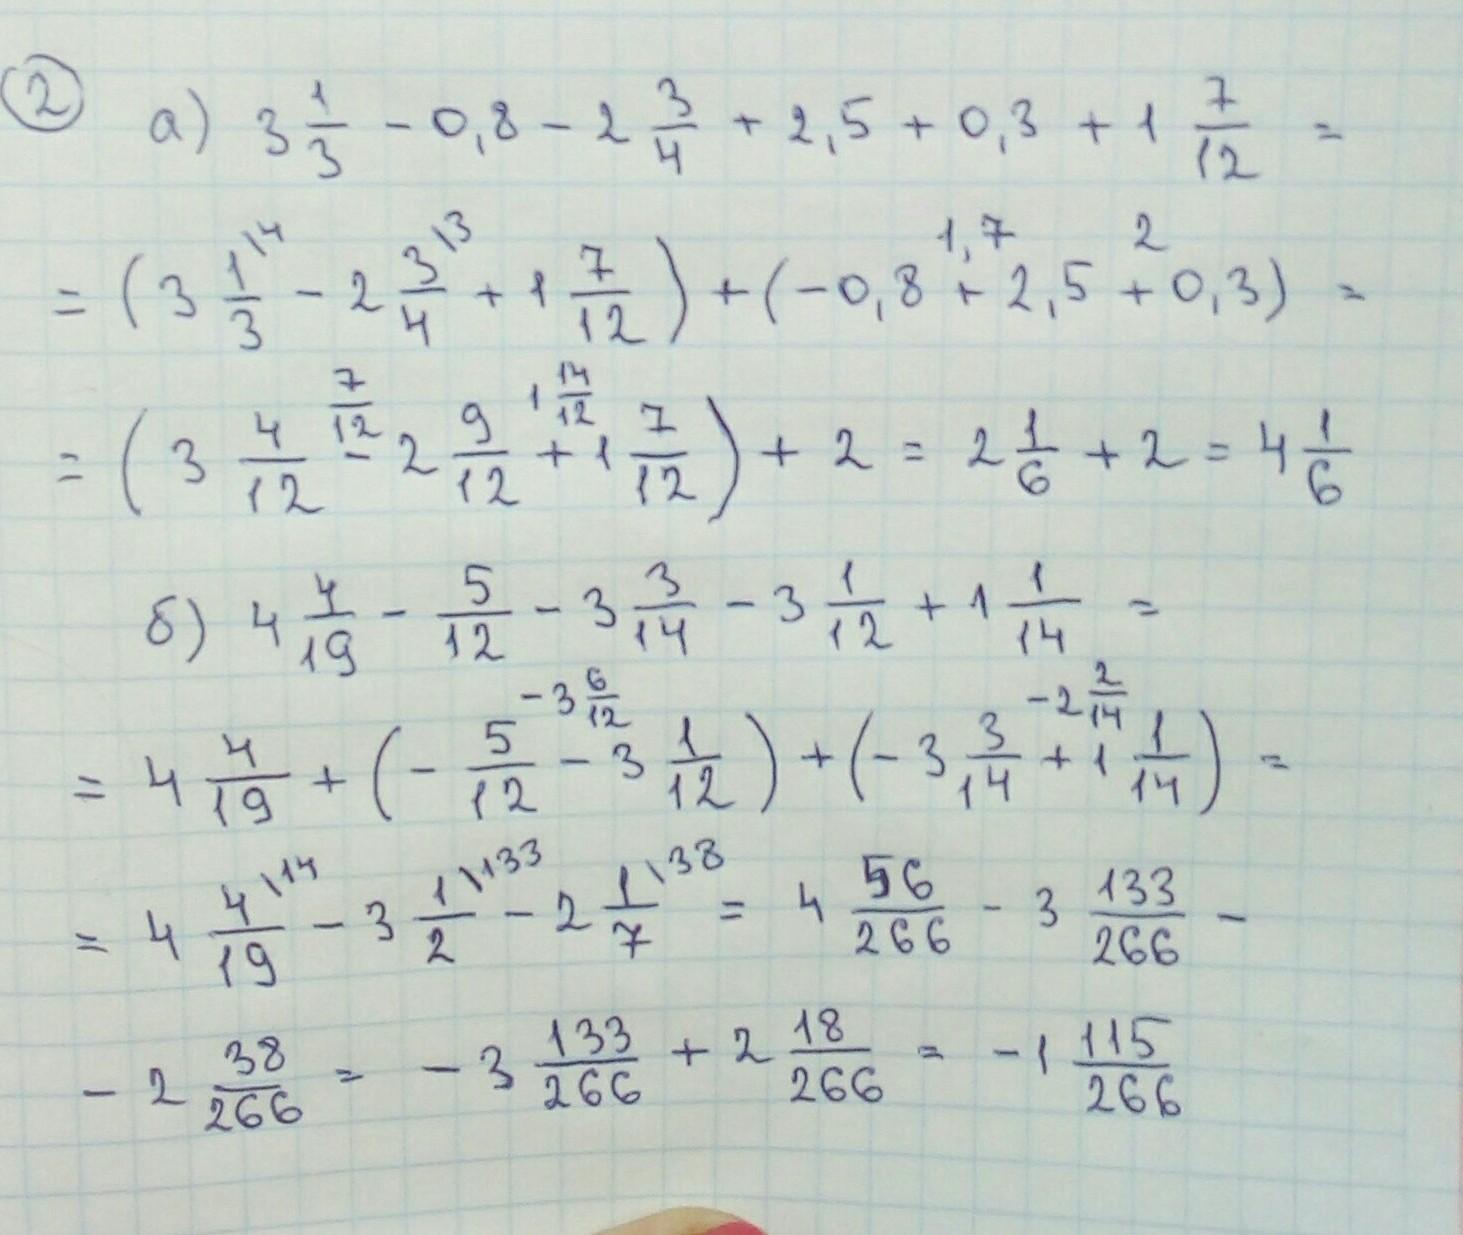 ② а) 3 1/3 - 0,8 - 2 3/4 + 2,5 + 0,3 + 1 7/12 =
1,7 2
= (3 1/3\4 - 2 3/4\3 + 1 7/12) + (-0,8 + 2,5 + 0,3) =
7/12 1 14/12
= (3 4/12 - 2 9/12 + 1 7/12) + 2 = 2 1/6 + 2 = 4 1/6
б) 4 4/19 - 5/12 - 3 3/14 - 3 1/12 + 1 1/14 =
-3 6/12 -2 2/14
= 4 4/19 + (- 5/12 - 3 1/12) + (-3 3/14 + 1 1/14) =
= 4 4/19\14 - 3 1/2\133 - 2 1/7\38 = 4 56/266 - 3 133/266 -
- 2 38/266 = -3 133/266 + 2 18/266 = -1 115/266